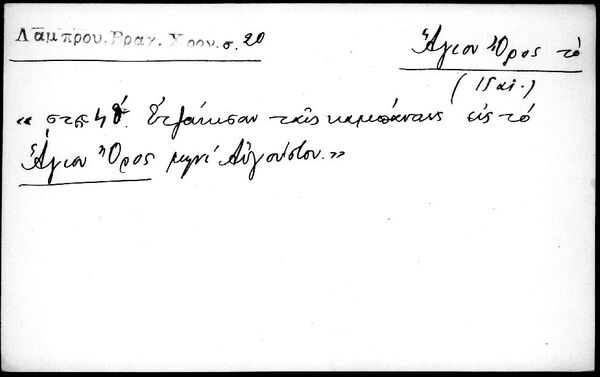 Λαμπρου. Βραχ. Χρον. σ. 20
Ἅγιον Ὄρος τό
(15 αἰ.)
« στς Ϟθ́. Ἐτζάκισαν ταῖς καμπάναις εἰς τό
Ἅγιον Ὄρος μηνί Αὐγούστου. »